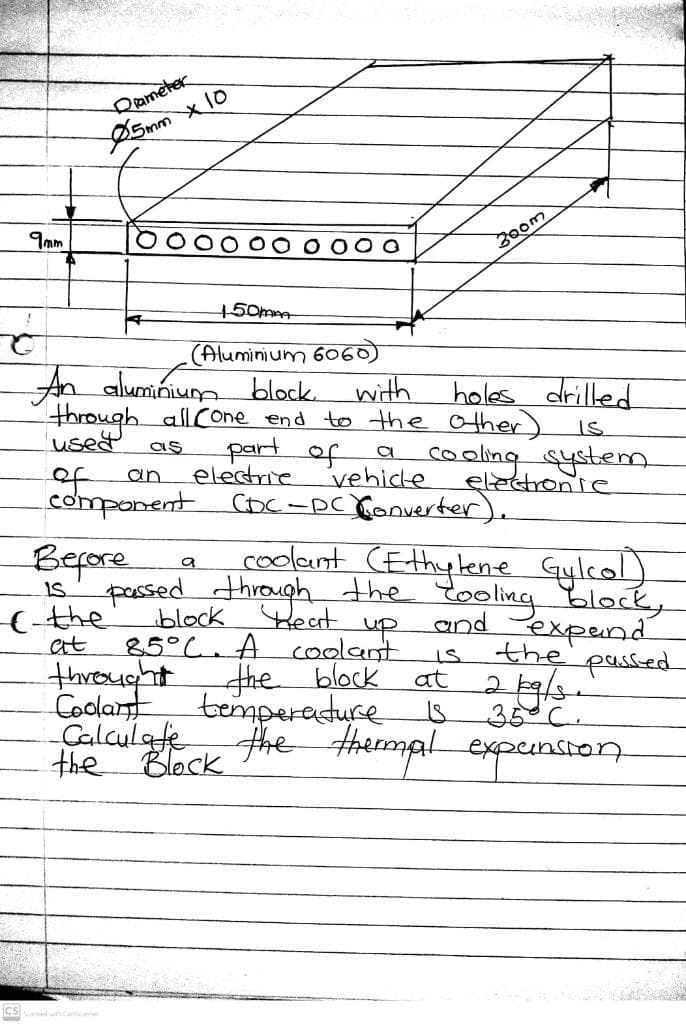 Diameter
Ø5mm × 10
9mm
300m
150mm
(Aluminium 6060)
An aluminium block with holes drilled
through all (one end to the other) is
used as part of a cooling system
of an electric vehicle electronic
component (DC-DC Converter).
Before a coolant (Ethylene Gylcol)
is passed through the cooling block,
the block heat up and expand
at 85°C. A coolant is the passed
throught the block at 2 kg/s.
Coolant temperature is 35°C.
Calculate the thermal expansion
the Block
CS Scanned with CamScanner